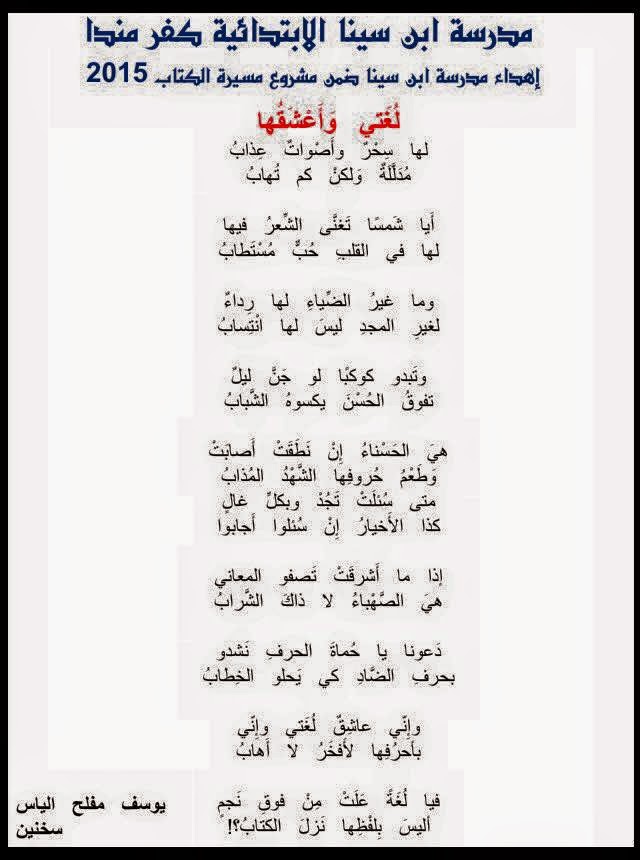 مدرسة ابن سينا الابتدائية كفر مندا
إهداء مدرسة ابن سينا ضمن مشروع مسيرة الكتاب 2015
لُغَتي وَأَعْشَقُها
لها سِحْرٌ وأَصْواتٌ عِذابُ
مُدَلَّلَةٌ وَلكنْ كم تُهابُ
أَيا شَمسًا تَغنَّى الشِّعرُ فيها
لها في القلبِ حُبٌّ مُسْتَطابُ
وما غيرُ الضِّياءِ لها رِداءٌ
لغيرِ المجدِ ليسَ لها انْتِسابُ
وتَبدو كوكبًا لو جَنَّ ليلٌ
تفوقُ الحُسْنَ يكسوهُ الشَّبابُ
هيَ الحَسْناءُ إنْ نَطَقَتْ أَصابَتْ
وَطَعْمُ حُروفِها الشَّهْدُ المُذابُ
متى سُئلَتْ تَجُدْ وبكلِّ غالٍ
كذا الأَخيارُ إنْ سُئلوا أَجابوا
إذا ما أَشرقَتْ تَصفو المعاني
هيَ الصَّهْباءُ لا ذاكَ الشَّرابُ
دَعونا يا حُماةَ الحرفِ نَشدو
بحرفِ الضَّادِ كي يَحلو الخِطابُ
وإنّي عاشِقٌ لُغَتي وإنّي
بأحرُفِها لأَفخَرُ لا أَهابُ
فيا لُغَةً عَلَتْ مِنْ فوقِ نَجمٍ
أليسَ بِلَفْظِها نَزلَ الكتابُ؟!
يوسف مفلح الياس
سخنين